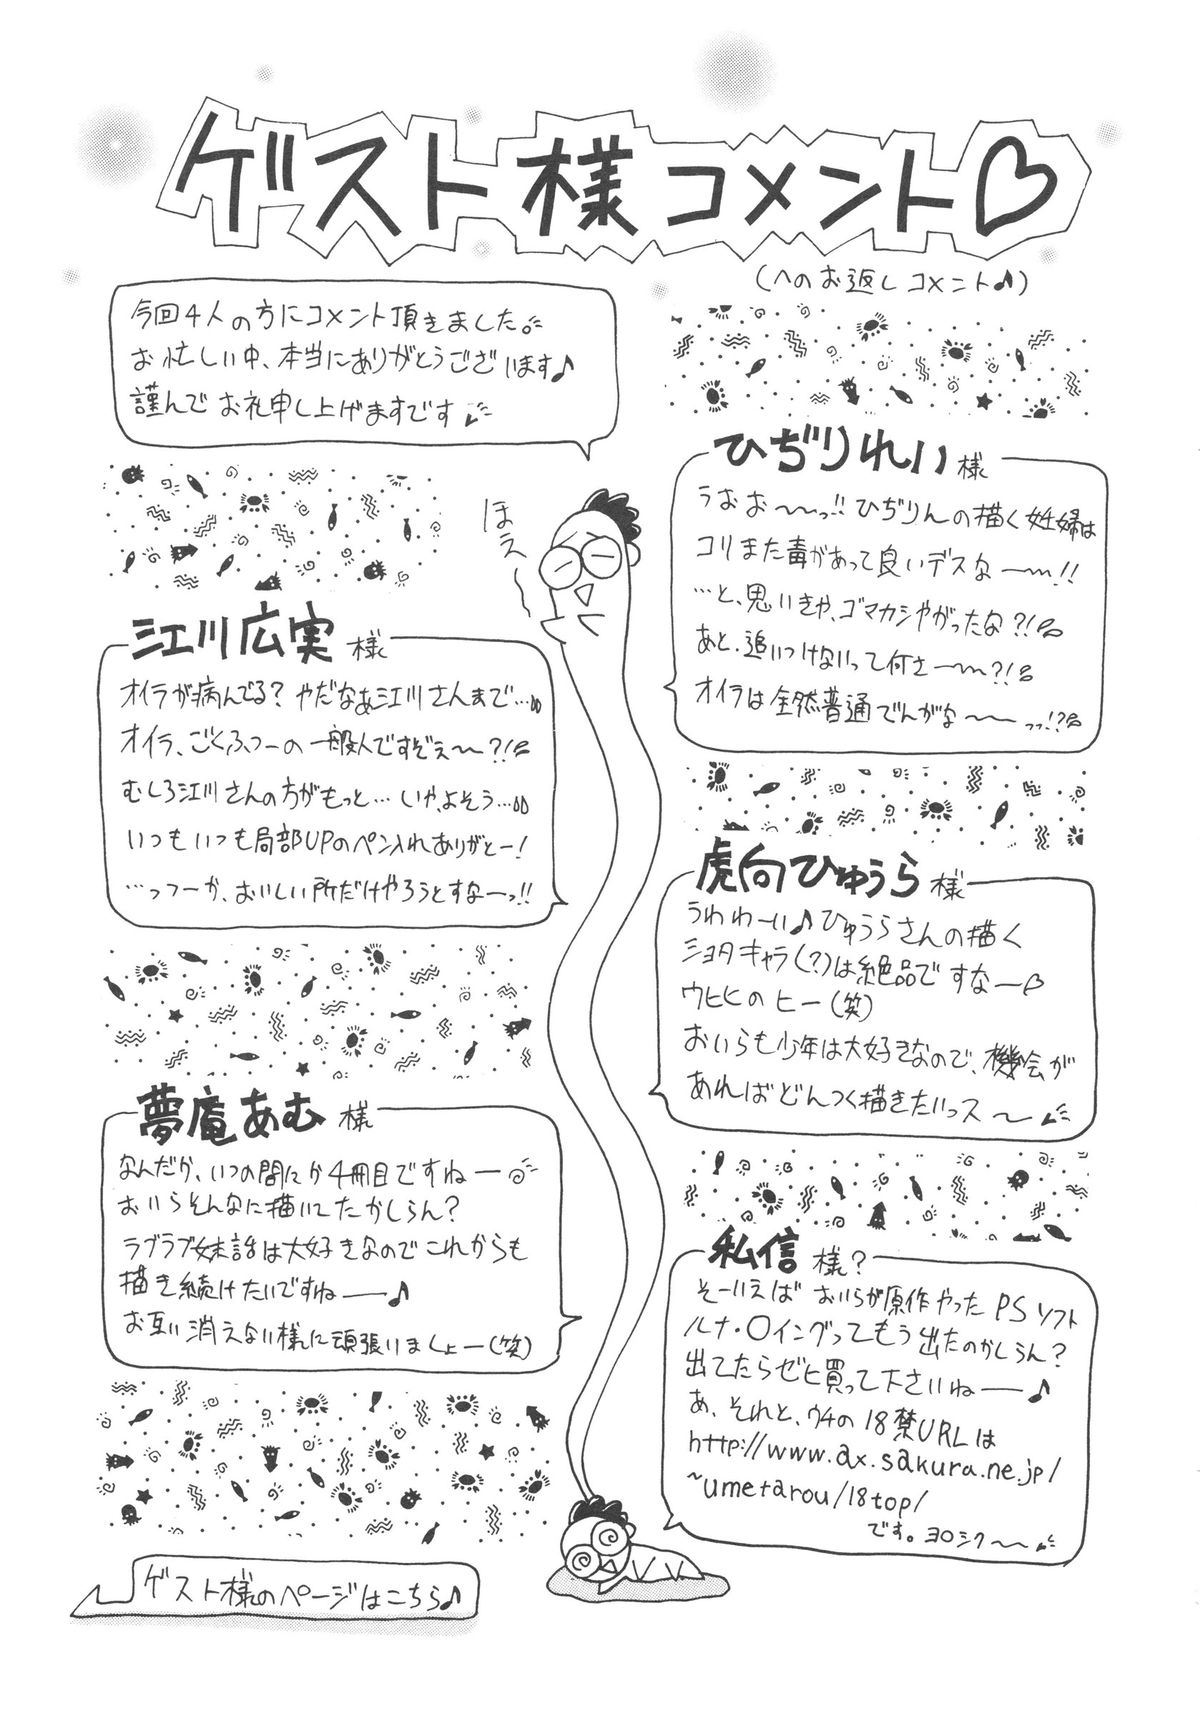 ゲスト様コメント♡
(へのお返しコメント♪)
今回4人の方にコメント頂きました。
お忙しい中、本当にありがとうございます♪
謹んでお礼申し上げますです
ほえ〜
ひぢりれい様
うおお〜〜っ!!ひぢりんの描く妊婦は
コリまた毒があって良いデスな〜〜!!
…と、思いきや、ゴマカシやがったな?!
あと、追いつけないって何さ〜〜?!
オイラは全然普通でんがな〜〜っっ!?
江川広実様
オイラが病んでる?やだなぁ江川さんまで…
オイラ、ごくふつーの一般人ですぞぇ〜?!
むしろ江川さんの方がもっと…いや、よそう…
いつもいつも局部UPのペン入れありがとー!
…っつーか、おいしい所だけやろうとすなーっ!!
虎向ひゅうら様
うわわーい♪ひゅうらさんの描く
ショタキャラ(?)は絶品ですなー♡
ウヒヒのヒー(笑)
おいらも少年は大好きなので、機会が
あればどんつく描きたいっス〜
夢庵あむ様
なんだか、いつの間にか4冊目ですねー
おいらそんなに描いてたかしらん?
ラブラブ妹話は大好きなのでこれからも
描き続けたいですね――♪
お互い消えない様に頑張いましょー(笑)
私信様?
そーいえばおいらが原作やったPSソフト
ルナ・〇イングってもう出たのかしらん?
出てたらゼヒ買って下さいね――♪
あ、それと、ウチの18禁URLは
http://www.ax.sakura.ne.jp/
~umetarou/18top/
です。ヨロシク〜〜
ゲスト様のページはこちら♪